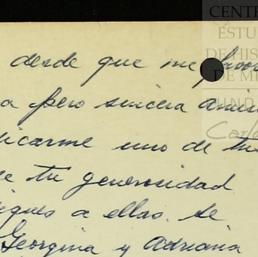 CENT
ESTU
DE HIS
DE M
desde que me
a pero sincera amis
dicarme uno de tu
e tu generosidad
egues a ellas. Se
Georgina y Adriana